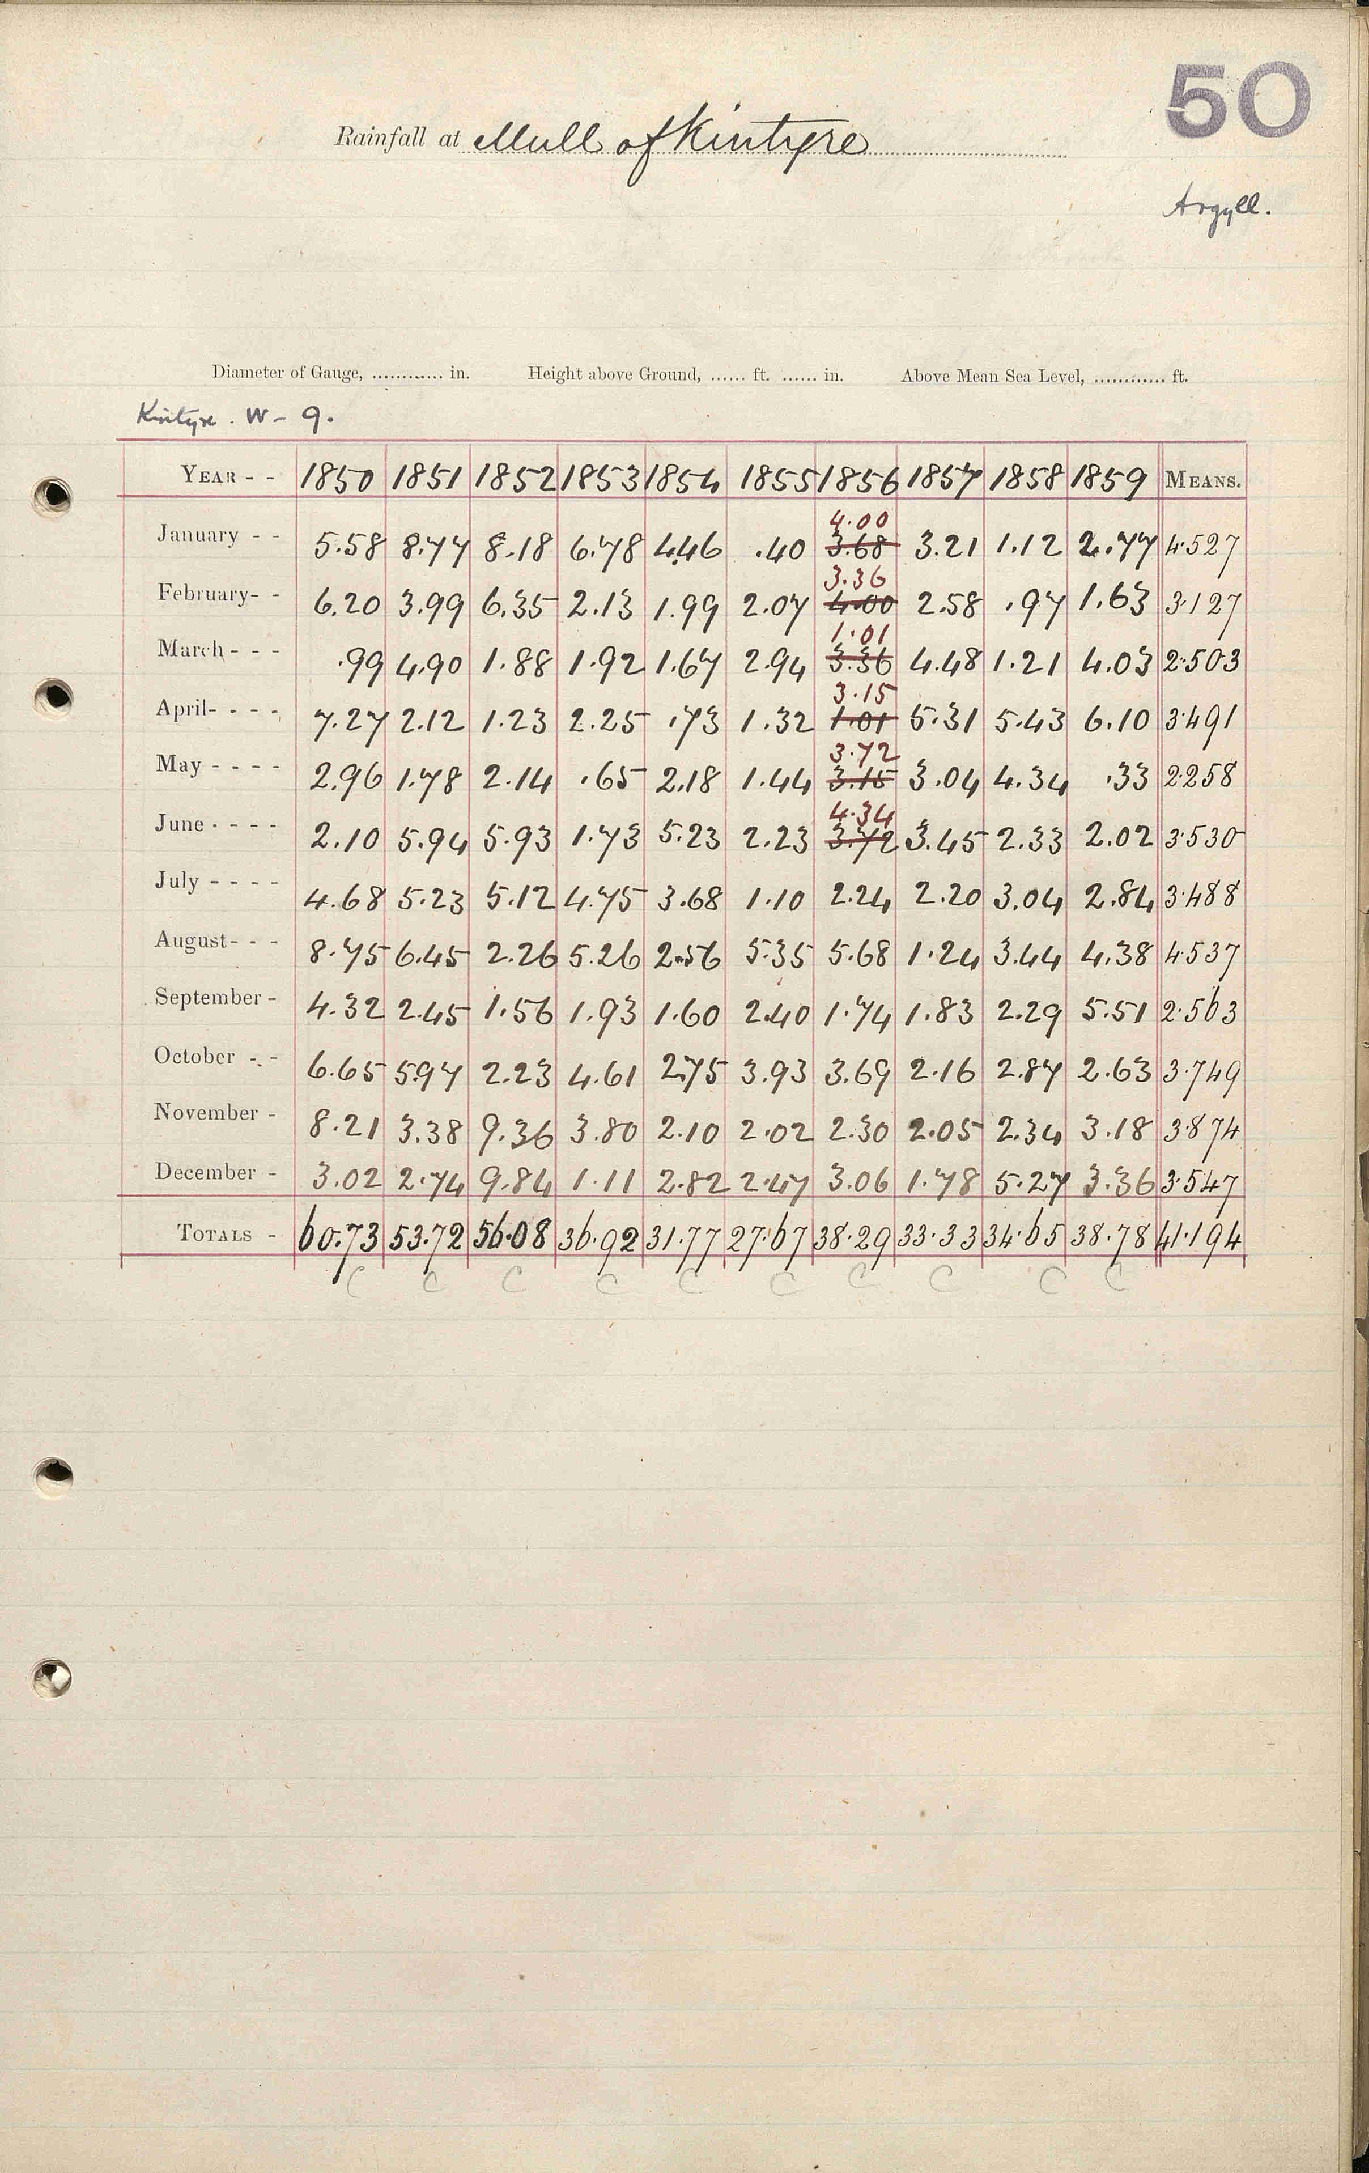 50
Rainfall at Mull of Kintyre
Argyll.
Diameter of Gauge, ............ in. Height above Ground, ...... ft. ...... in. Above Mean Sea Level, ............ ft.
Kintyre. W - 9.
YEAR - - 1850 1851 1852 1853 1854 1855 1856 1857 1858 1859 MEANS.
4.00
January - - 5.58 8.77 8.18 6.78 4.46 .40 3.68 3.21 1.12 2.77 4.527
3.36
February- - 6.20 3.99 6.35 2.13 1.99 2.07 4.00 2.58 .97 1.63 3.127
1.01
March - - - .99 4.90 1.88 1.92 1.67 2.94 3.36 4.48 1.21 4.03 2.503
3.15
April- - - - 7.27 2.12 1.23 2.25 .73 1.32 1.01 5.31 5.43 6.10 3.491
3.72
May - - - - 2.96 1.78 2.14 .65 2.18 1.44 3.15 3.04 4.34 .33 2.258
4.34
June - - - - 2.10 5.94 5.93 1.73 5.23 2.23 3.72 3.45 2.33 2.02 3.530
July - - - - 4.68 5.23 5.12 4.75 3.68 1.10 2.24 2.20 3.04 2.84 3.488
August- - - 8.75 6.45 2.26 5.26 2.56 5.35 5.68 1.24 3.44 4.38 4.537
September - 4.32 2.45 1.56 1.93 1.60 2.40 1.74 1.83 2.29 5.51 2.563
October - - 6.65 5.97 2.23 4.61 2.75 3.93 3.69 2.16 2.87 2.63 3.749
November - 8.21 3.38 9.36 3.80 2.10 2.02 2.30 2.05 2.34 3.18 3.874
December - 3.02 2.74 9.84 1.11 2.82 2.47 3.06 1.78 5.27 3.36 3.547
TOTALS - 60.73 53.72 56.08 36.92 31.77 27.67 38.29 33.33 34.65 38.78 41.194
C C C C C C C C C C